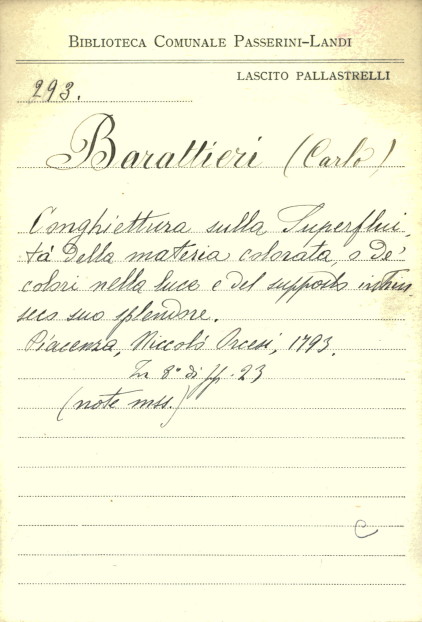 BIBLIOTECA COMUNALE PASSERINI-LANDI
LASCITO PALLASTRELLI
293.
Barattieri (Carlo)
Conghiettura sulla Superflui-
tà della materia colorata o de'
colori nella luce e del supposto intrin-
seco suo splendore.
Piacenza, Niccolò Orcesi, 1793.
In 8° di pp. 23
(note mss.)
C